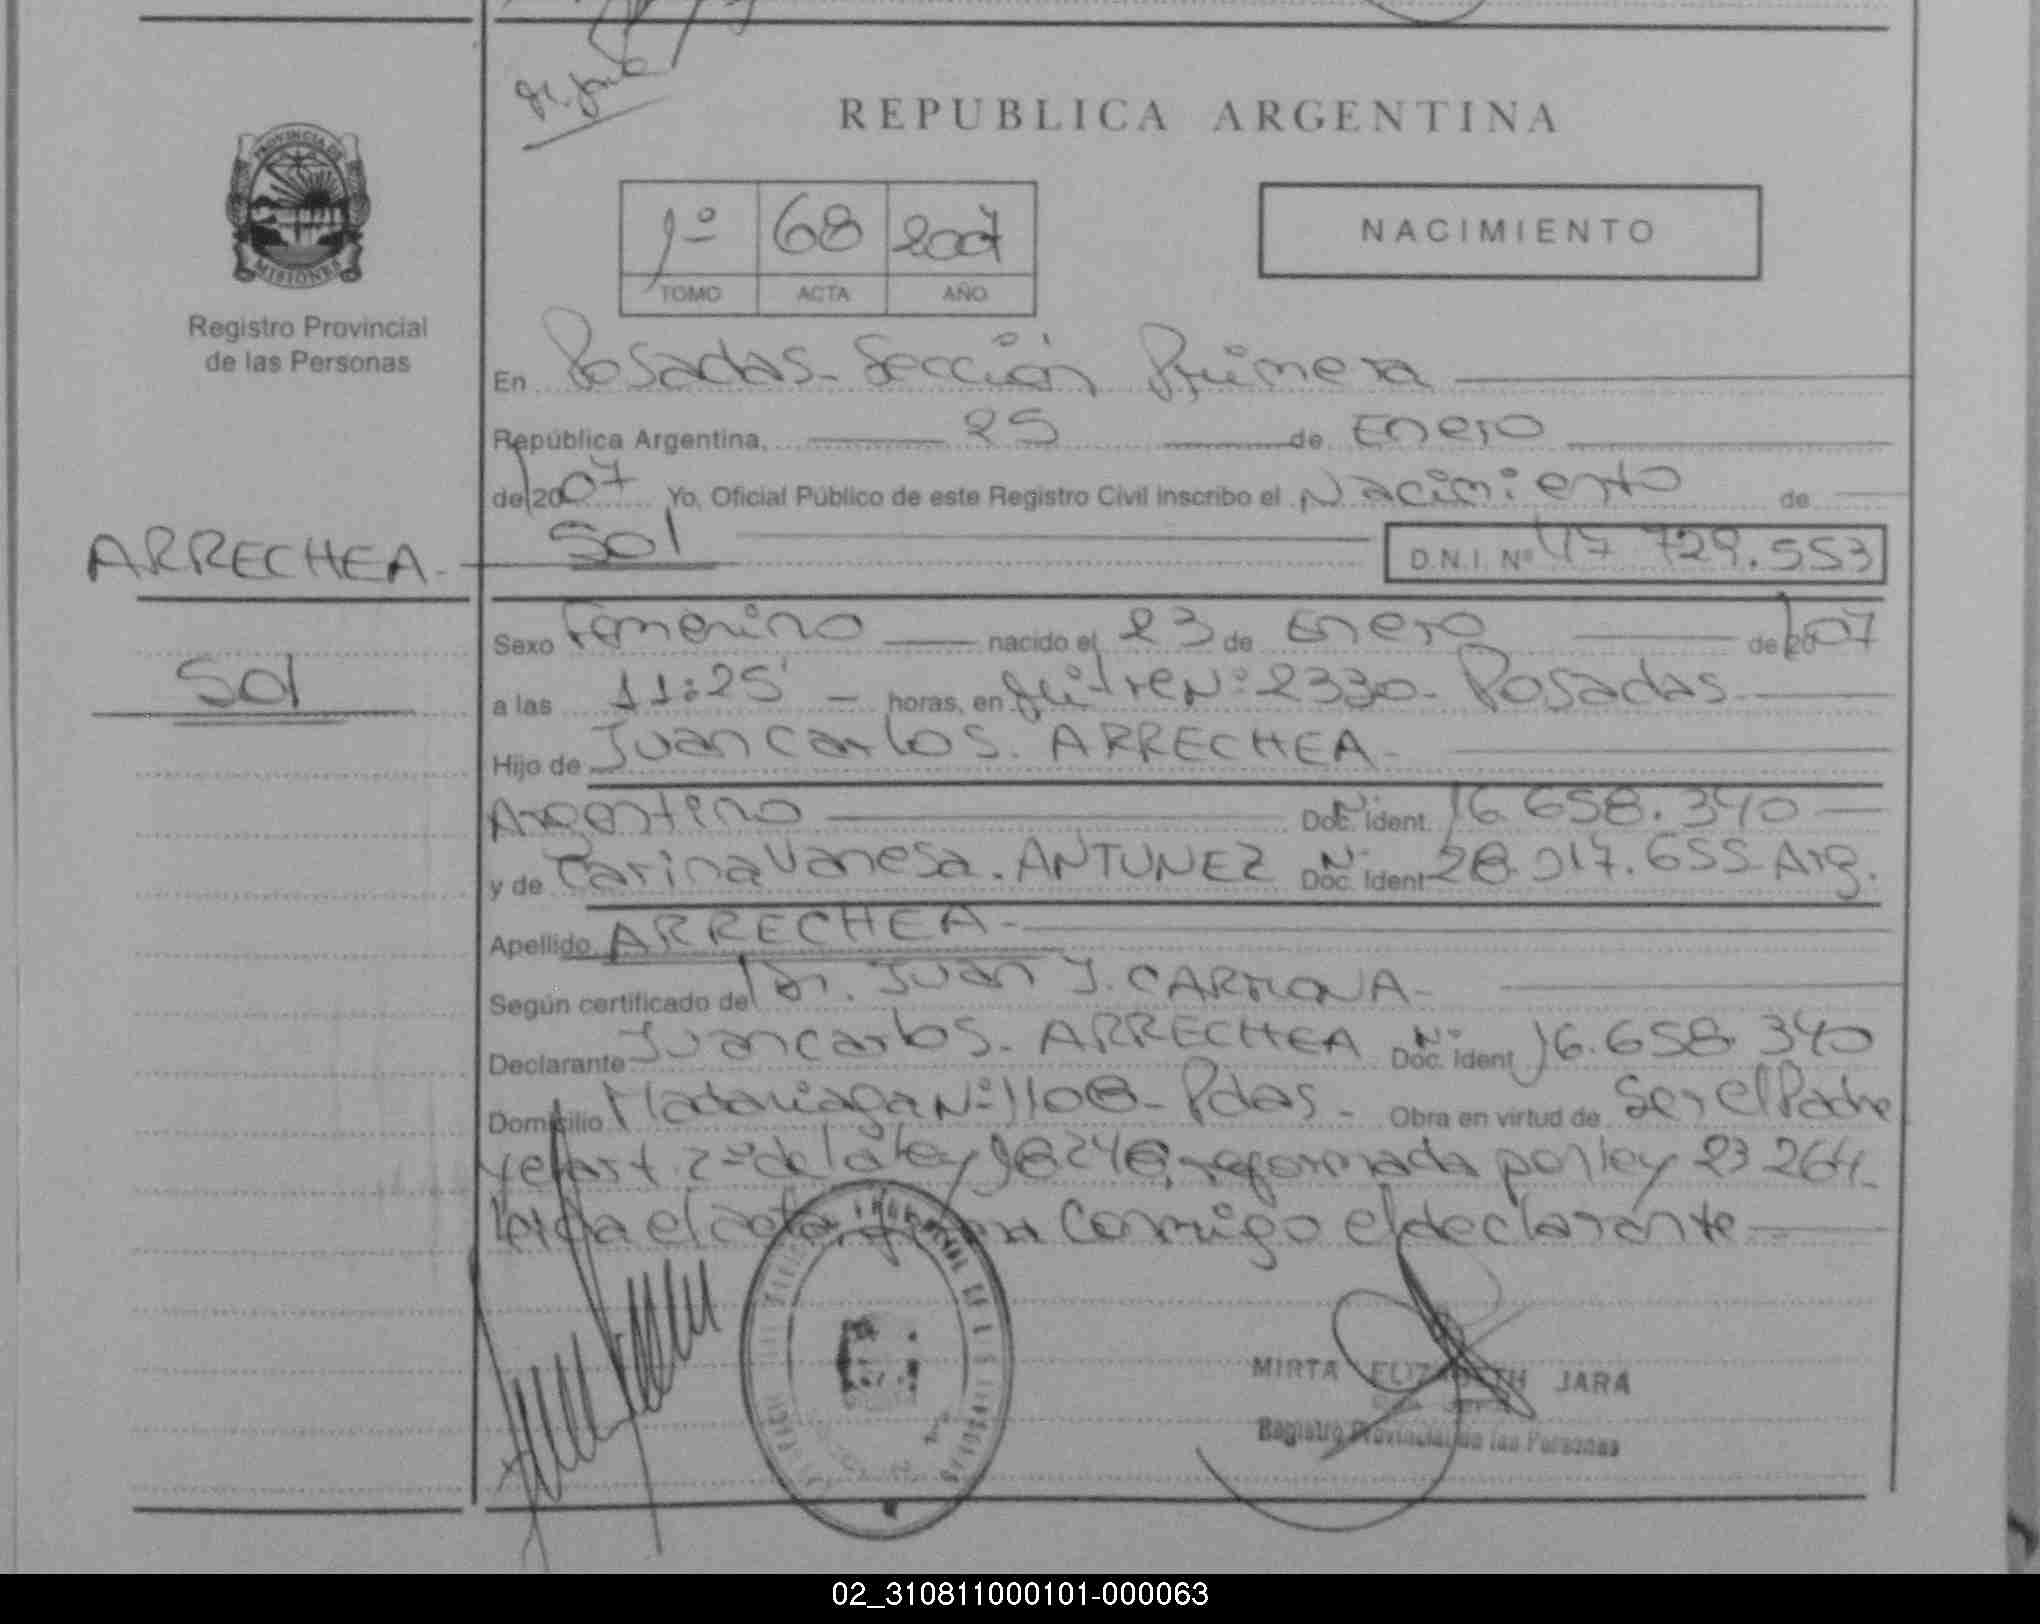 REPUBLICA ARGENTINA
PROVINCIA DE
MISIONES
Registro Provincial
de las Personas
1º 68 2007
TOMO ACTA AÑO
NACIMIENTO
En Posadas - Sección Primera
República Argentina, 25 de Enero
de 2007 Yo, Oficial Público de este Registro Civil inscribo el Nacimiento de
ARRECHEA - Sol
D.N.I. Nº 47 729.553
Sol
Sexo Femenino nacido el 23 de Enero de 2007
a las 11:25' - horas, en Mitre Nº 2330 - Posadas
Hijo de Juan Carlos. ARRECHEA -
Argentino Nº Doc. Ident. 16.658.340
y de Carina Vanesa. ANTUNEZ Nº Doc. Ident 28.017.655 Arg.
Apellido ARRECHEA -
Según certificado de Dr. Juan J. CARMONA -
Declarante Juan Carlos. ARRECHEA Nº Doc. Ident 16.658.340
Domicilio Madariaga Nº 1108 - Pdas - Obra en virtud de Ser el Padre
y el art. 2º de la ley 18248, reformada por ley 23 264.
Leida el acta, firma conmigo el declarante
MIRTA ELIZABETH JARA
Registro Provincial de las Personas
02_310811000101-000063